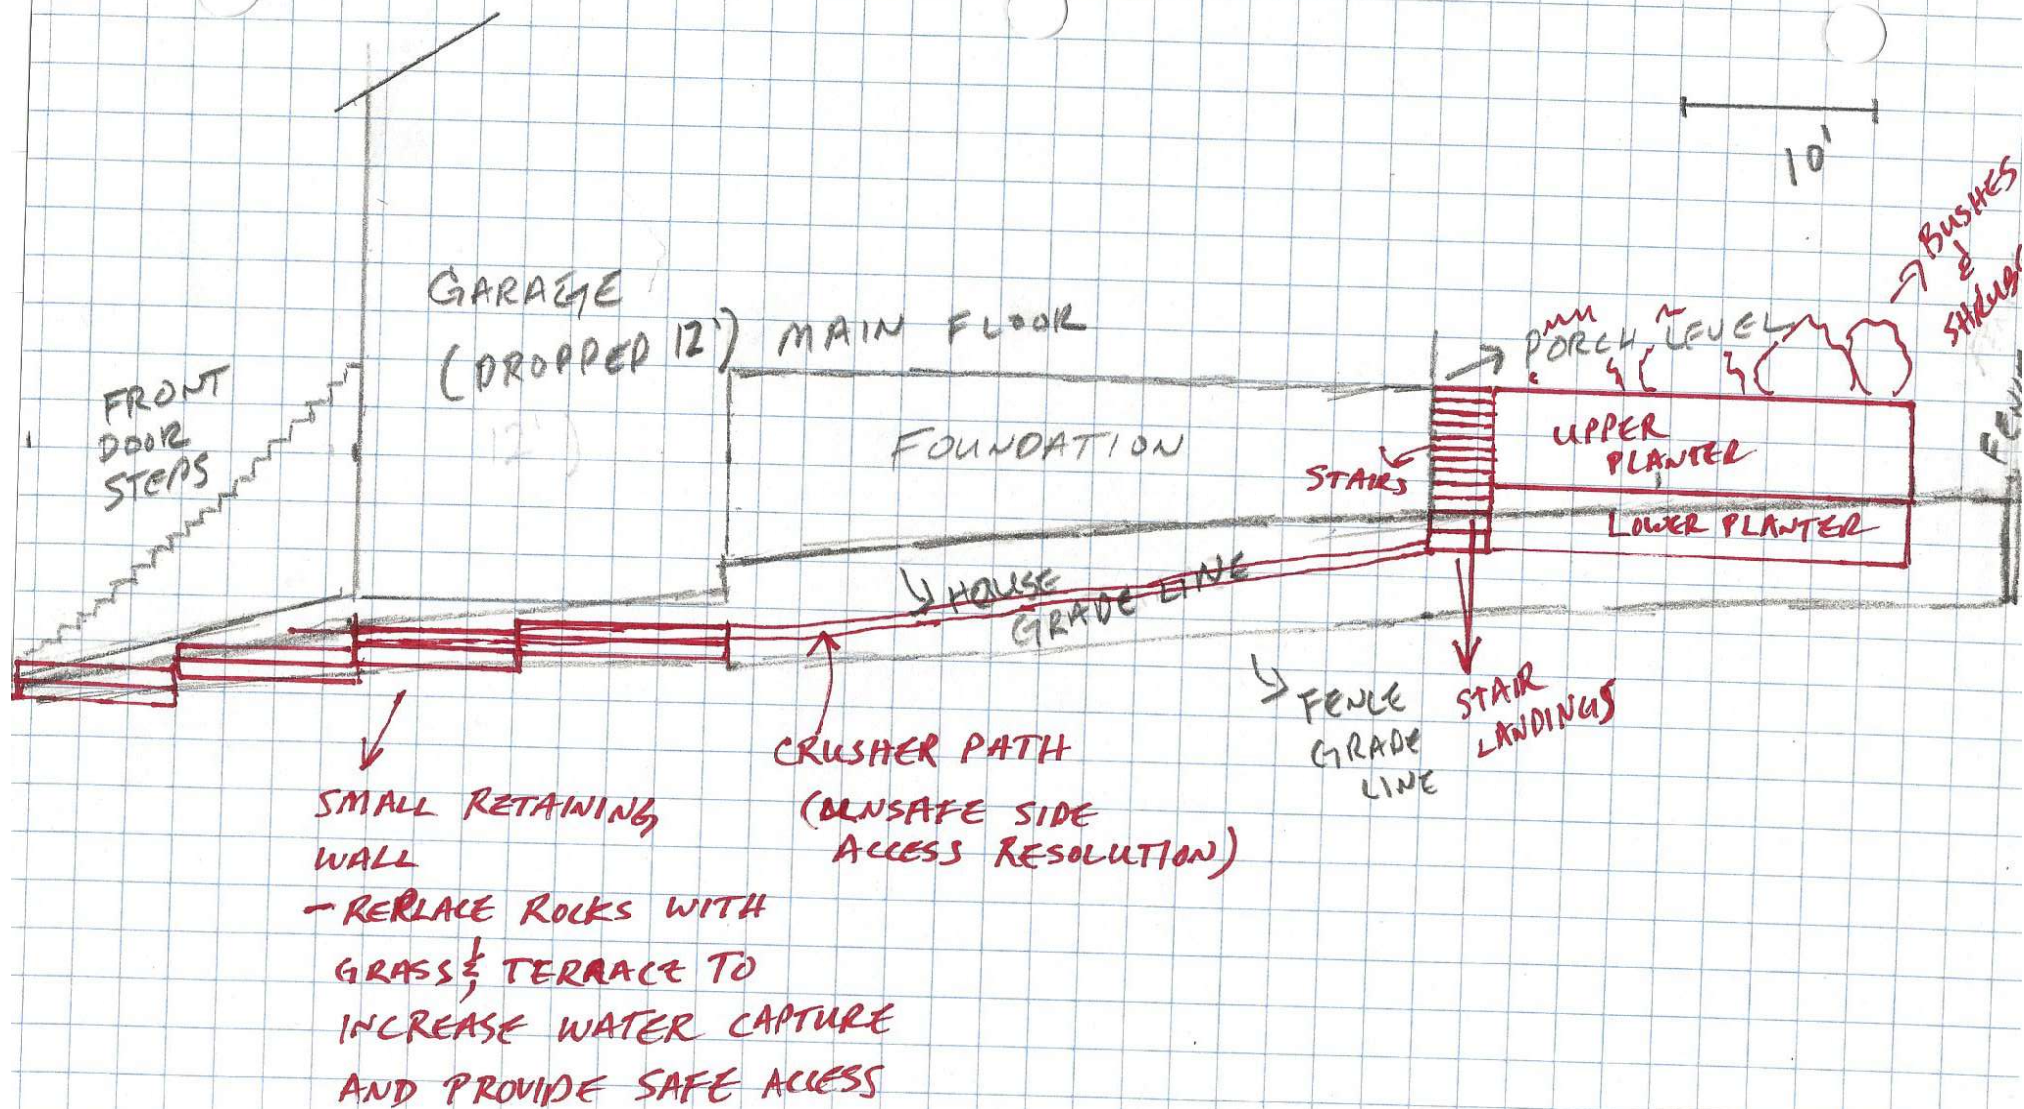 10'
BUSHES
&
GARAGE
(DROPPED 12')
MAIN FLOOR
PORCH LEVEL
FRONT
DOOR
STEPS
FOUNDATION
STAIRS
UPPER
PLANTER
LOWER PLANTER
HOUSE
GRADE LINE
FENCE
GRADE
LINE
STAIR
LANDINGS
CRUSHER PATH
(UNSAFE SIDE
ACCESS RESOLUTION)
SMALL RETAINING
WALL
- REPLACE ROCKS WITH
GRASS & TERRACE TO
INCREASE WATER CAPTURE
AND PROVIDE SAFE ACCESS